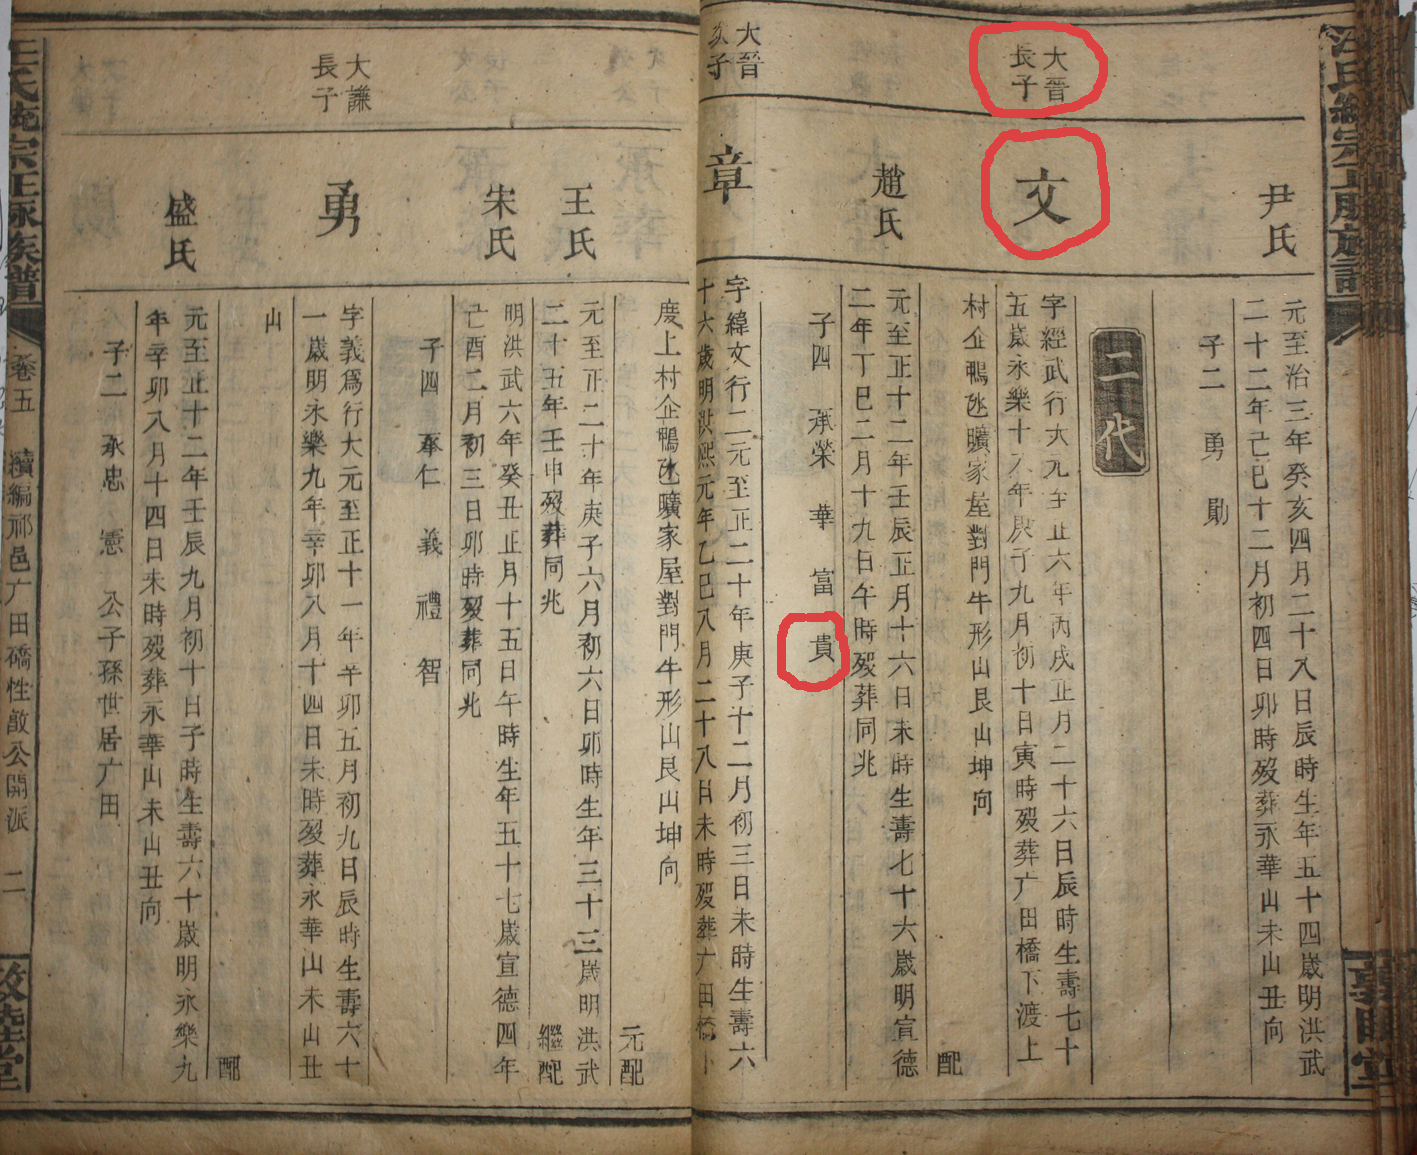 尹氏
元至治三年癸亥四月二十八日辰時生年五十四歲明洪武
二十二年己巳十二月初四日卯時歿葬永華山未山丑向
子二 勇 勛
二代
大晉
長子
文
字經武行大元至正六年丙戌正月二十六日辰時生壽七十
五歲永樂十八年庚子九月初十日寅時歿葬广田橋下渡上
村企鴨𣲙曠家屋對門牛形山艮山坤向
配
趙氏
元至正十二年壬辰正月十六日未時生壽七十六歲明宣德
二年丁巳二月十九日午時歿葬同兆
子四 承榮 華 富 貴
大晉
次子
章
字緯文行二元至正二十年庚子十二月初三日未時生壽六
十六歲明洪熙元年乙巳八月二十八日未時歿葬广田橋下
度上村企鴨𣲙曠家屋對門牛形山艮山坤向
元配
王氏
元至正二十年庚子六月初六日卯時生年三十三歲明洪武
二十五年壬申歿葬同兆
繼配
朱氏
明洪武六年癸丑正月十五日午時生年五十七歲宣德四年
己酉二月初三日卯時歿葬同兆
子四 奉仁 義 禮 智
大謙
長子
勇
字義爲行大元至正十一年辛卯五月初九日辰時生壽六十
一歲明永樂九年辛卯八月十四日未時歿葬永華山未山丑
山
配
盛氏
元至正十二年壬辰九月初十日子時生壽六十歲明永樂九
年辛卯八月十四日未時歿葬永華山未山丑向
子二 永忠 憲 公子孫世居广田
汪氏統宗正脉族譜
卷五
續編祁邑广田橋性敌公開派
二